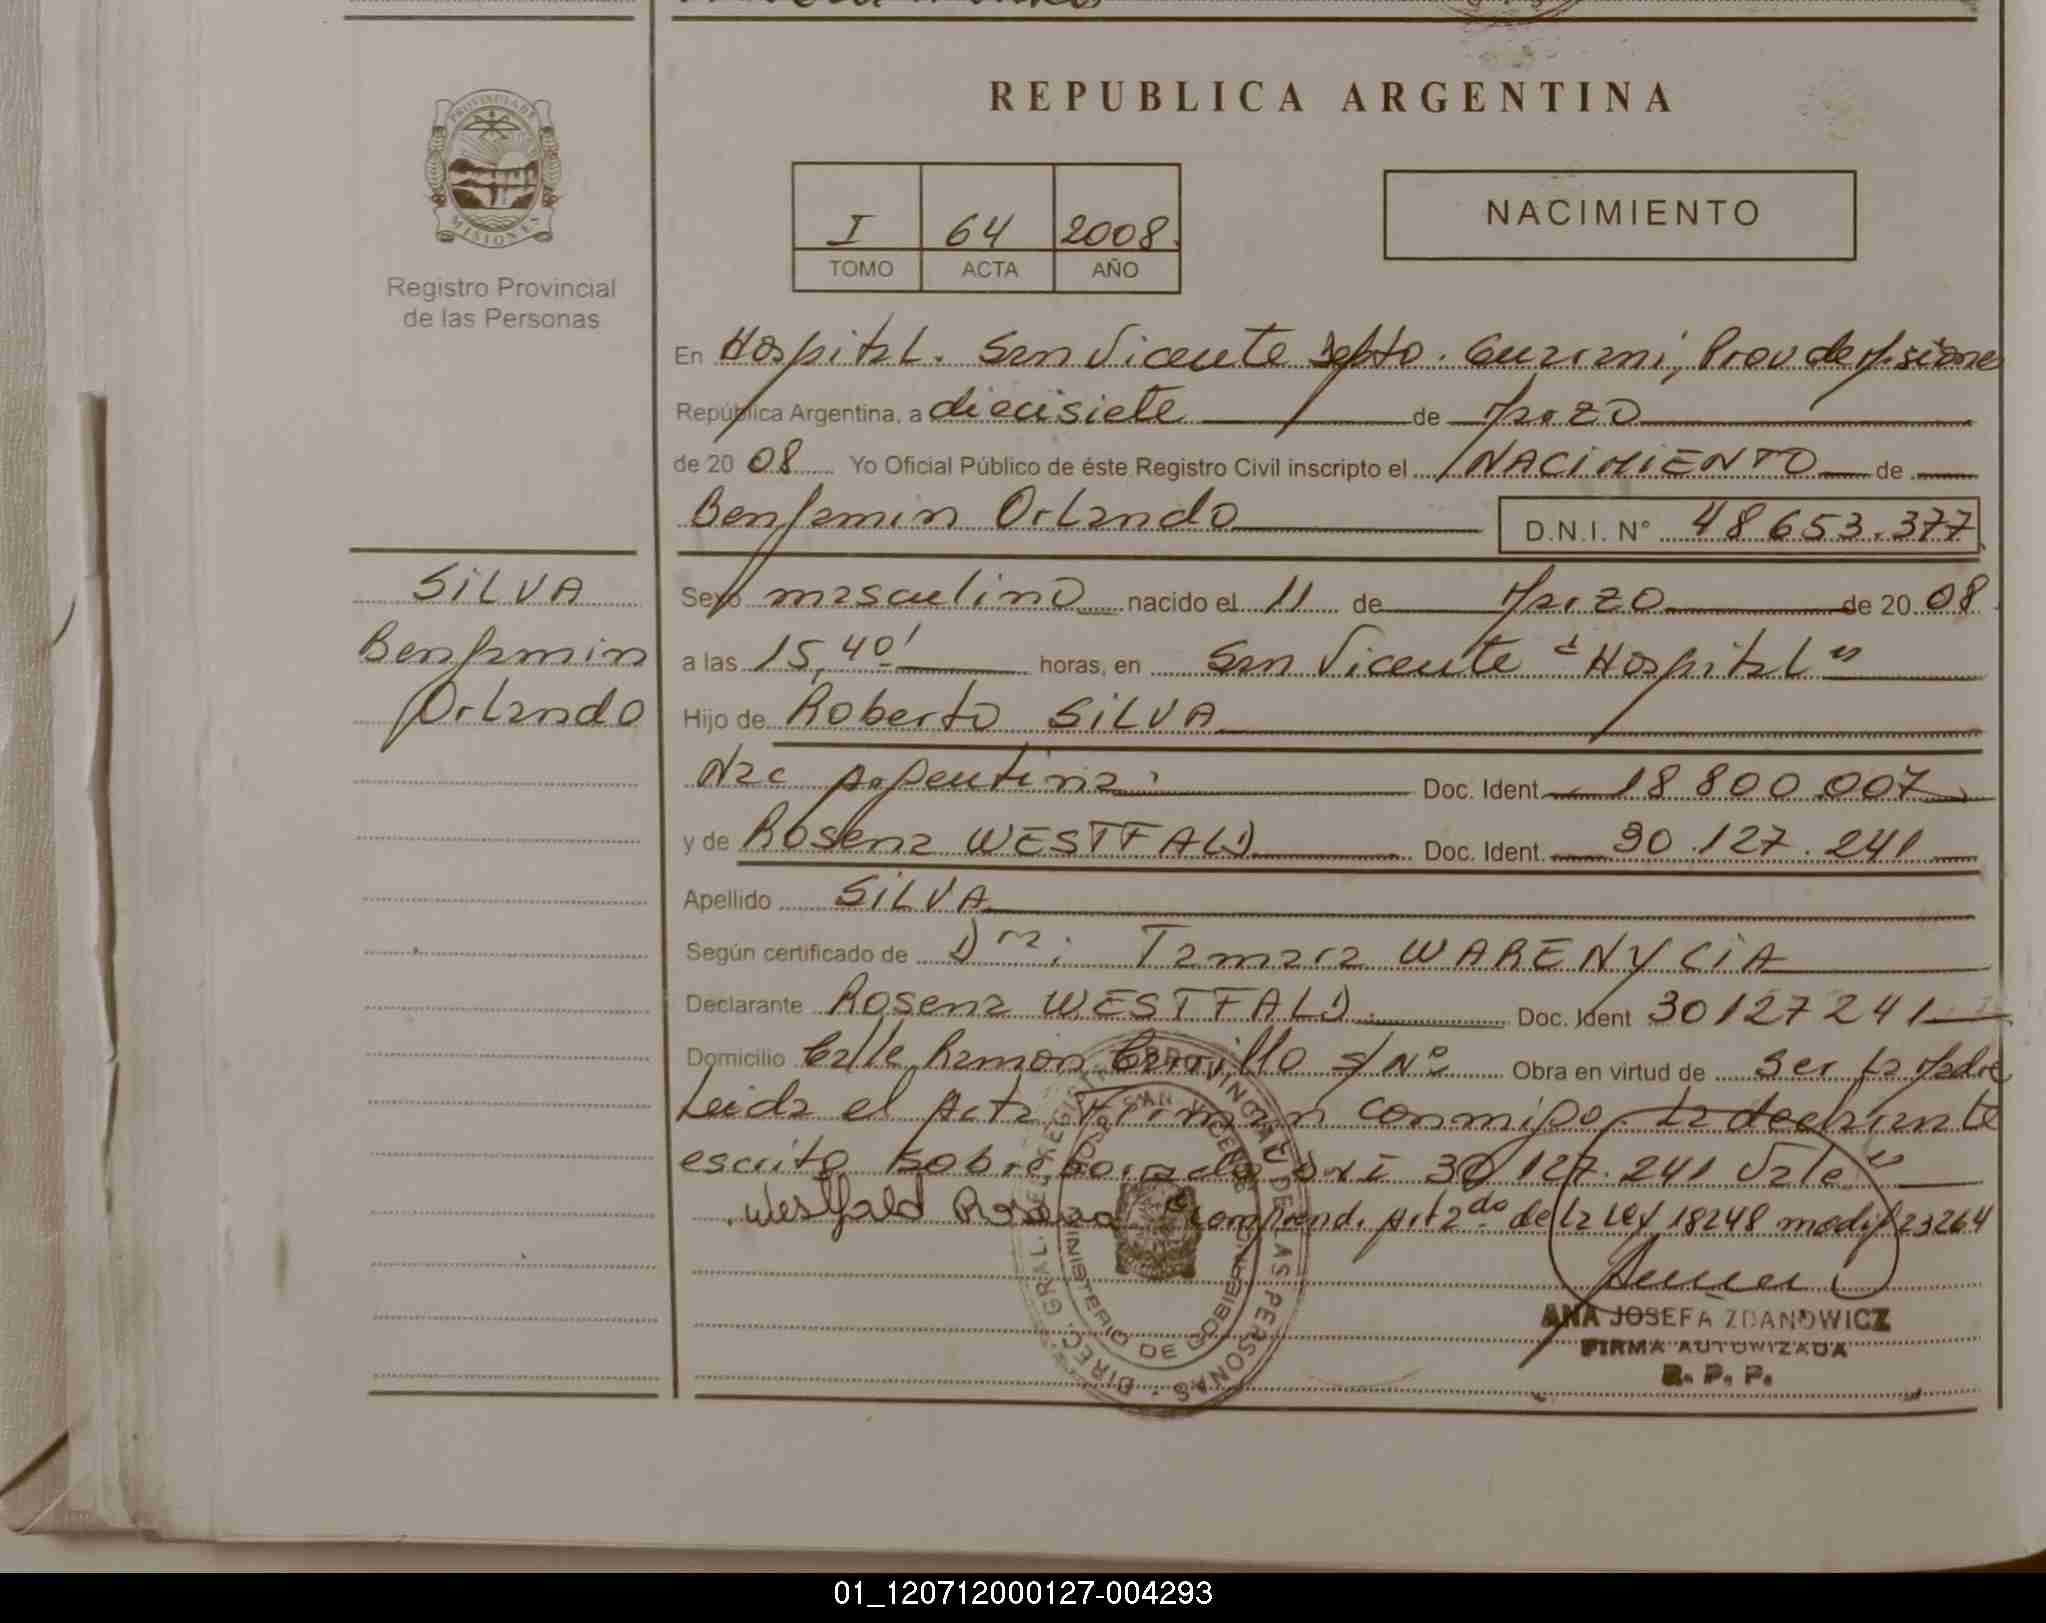 REPUBLICA ARGENTINA
PROVINCIA DE
MISIONES
Registro Provincial
de las Personas
I 64 2008
TOMO ACTA AÑO
NACIMIENTO
En Hospital. San Vicente Depto. Guarani, Prov de Misiones
República Argentina, a diecisiete de Marzo
de 20 08 Yo Oficial Público de éste Registro Civil inscripto el NACIMIENTO de
Benjamin Orlando D.N.I. Nº 48653.377
SILVA
Benjamin
Orlando
Sexo masculino nacido el 11 de Marzo de 20 08
a las 15,40' horas, en San Vicente "Hospital"
Hijo de Roberto SILVA
Nac Argentina. Doc. Ident. 18 800 007
y de Rosena WESTFALD Doc. Ident. 30.127.241
Apellido SILVA
Según certificado de Dra: Tamara WARENYCIA
Declarante Rosena WESTFALD. Doc. Ident 30127241
Domicilio Calle Ramon Carrillo s/Nº Obra en virtud de ser la Madre
Leida el Acta Firman conmigo la declarante
escrito sobre borrado DNI 30.127.241 Vale"
Westfald Rosena comprend. Art 2do de la Ley 18248 modif 23264
DIREC. GRAL. DEL REGISTRO PROVINCIAL DE LAS PERSONAS
HOSP. SAN VICENTE
MINISTERIO DE GOBIERNO
ANA JOSEFA ZDANOWICZ
FIRMA AUTORIZADA
R. P. P.
01_120712000127-004293